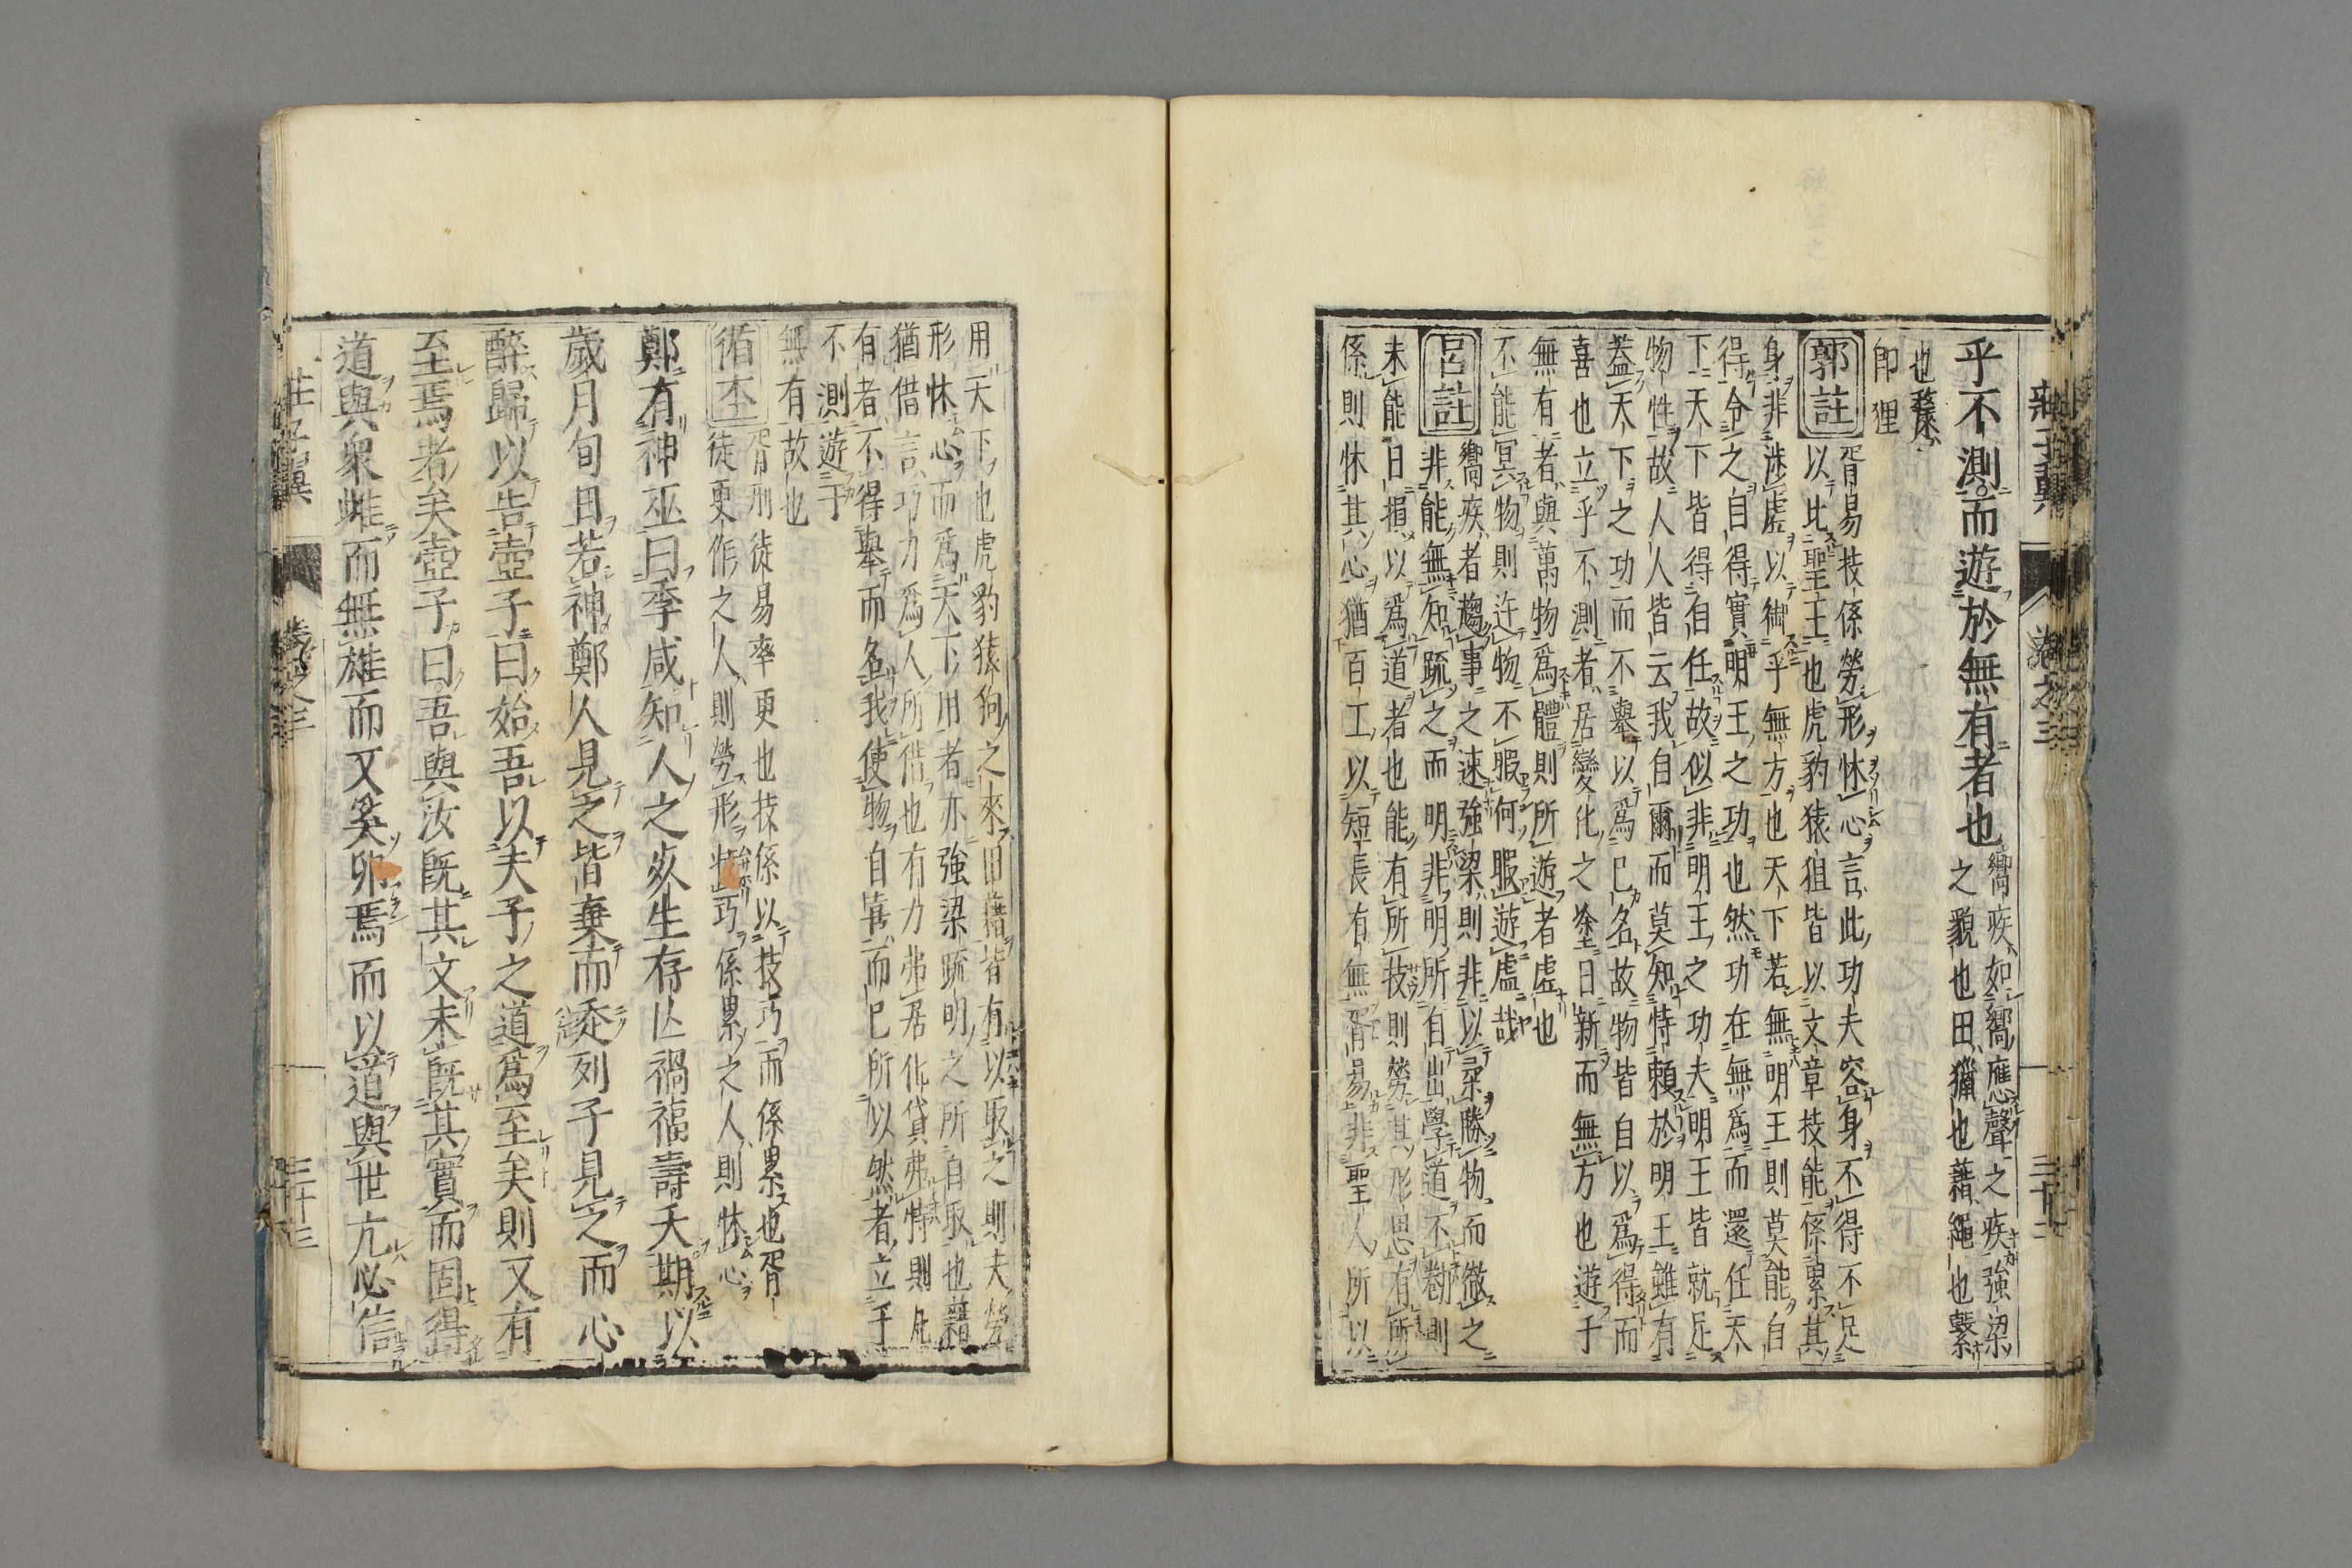 莊子翼 卷之三 三十二
乎不測而遊於無有者也
嚮疾如嚮應聲之疾強梁
之貌也田獵也藉繩也斄
也
即狸
郭註
胥易技係勞形怵心言此功夫容身不得不足
以比聖王也虎豹猿狙皆以文章技能係累其
身非涉虛以御乎無方也天下若無明王則莫能自
得令之自得實明王之功也然功在無為而還任天
下天下皆得自任故似非明王之功夫明王皆就足
物性故人人皆云我自爾而莫知恃賴於明王雖有
蓋天下之功而不舉以為已名故物皆自以為得而
喜也立乎不測者居變化之塗日新而無方也遊于
無有者與萬物為體則所遊者虛也
不能冥物則迕物不暇何暇遊虛哉
呂註
嚮疾者趨事之速強梁則非以柔勝物而徹之
非能無知疏之而明非明所自出學道不勌則
未能日損以為道者也能有所技則勞其形思有所
係則怵其心猶百工以短長有無胥易非聖人所以
用天下也虎豹猿狗之來田藉皆有以取之則夫勞
形怵心而為天下用者亦強梁疏明之所自取也藉
猶借言功力為人所借也有力弗居化貸弗恃則凡
有者不得舉而名我使物自喜而已所以然者立于
不測遊于
無有故也
循本
胥刑徒易率更也技係以技巧而係累也胥
徒更作之人則勞形技巧係累之人則怵心
鄭有神巫曰季咸知人之死生存亡禍福壽夭期以
歲月旬日若神鄭人見之皆棄而走列子見之而心
醉歸以告壺子曰始吾以夫子之道為至矣則又有
至焉者矣壺子曰吾與汝既其文未既其實而固得
道與眾雌而無雄而又奚卵焉而以道與世亢必信
莊子翼 卷之三 三十三